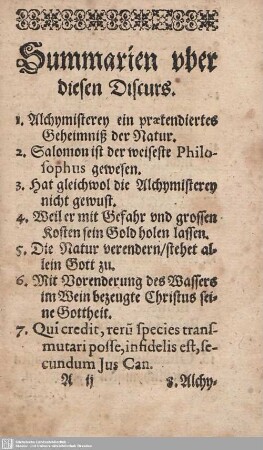 Summarien vber
diesen Discurs.
1. Alchymisterey ein prætendiertes
Geheimniß der Natur.
2. Salomon ist der weiseste Philo-
sophus gewesen.
3. Hat gleichwol die Alchymisterey
nicht gewust.
4. Weil er mit Gefahr vnd grossen
Kosten sein Gold holen lassen.
5. Die Natur verendern/stehet al-
lein Gott zu.
6. Mit Vorenderung des Wassers
im Wein bezeugte Christus sei-
ne Gottheit.
7. Qui credit, rerū species trans-
mutari posse, infidelis est, se-
cundum Jus Can.
A ij 8. Alchy-